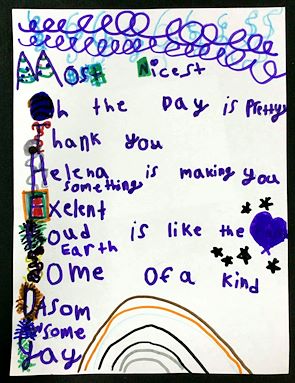 Most Nicest
Oh the Day is Pretty
Thank you
Helena is making you
something
Exelent
Roud is like the
Earth
Some Of a Kind
Dsom
Awsome
Yay